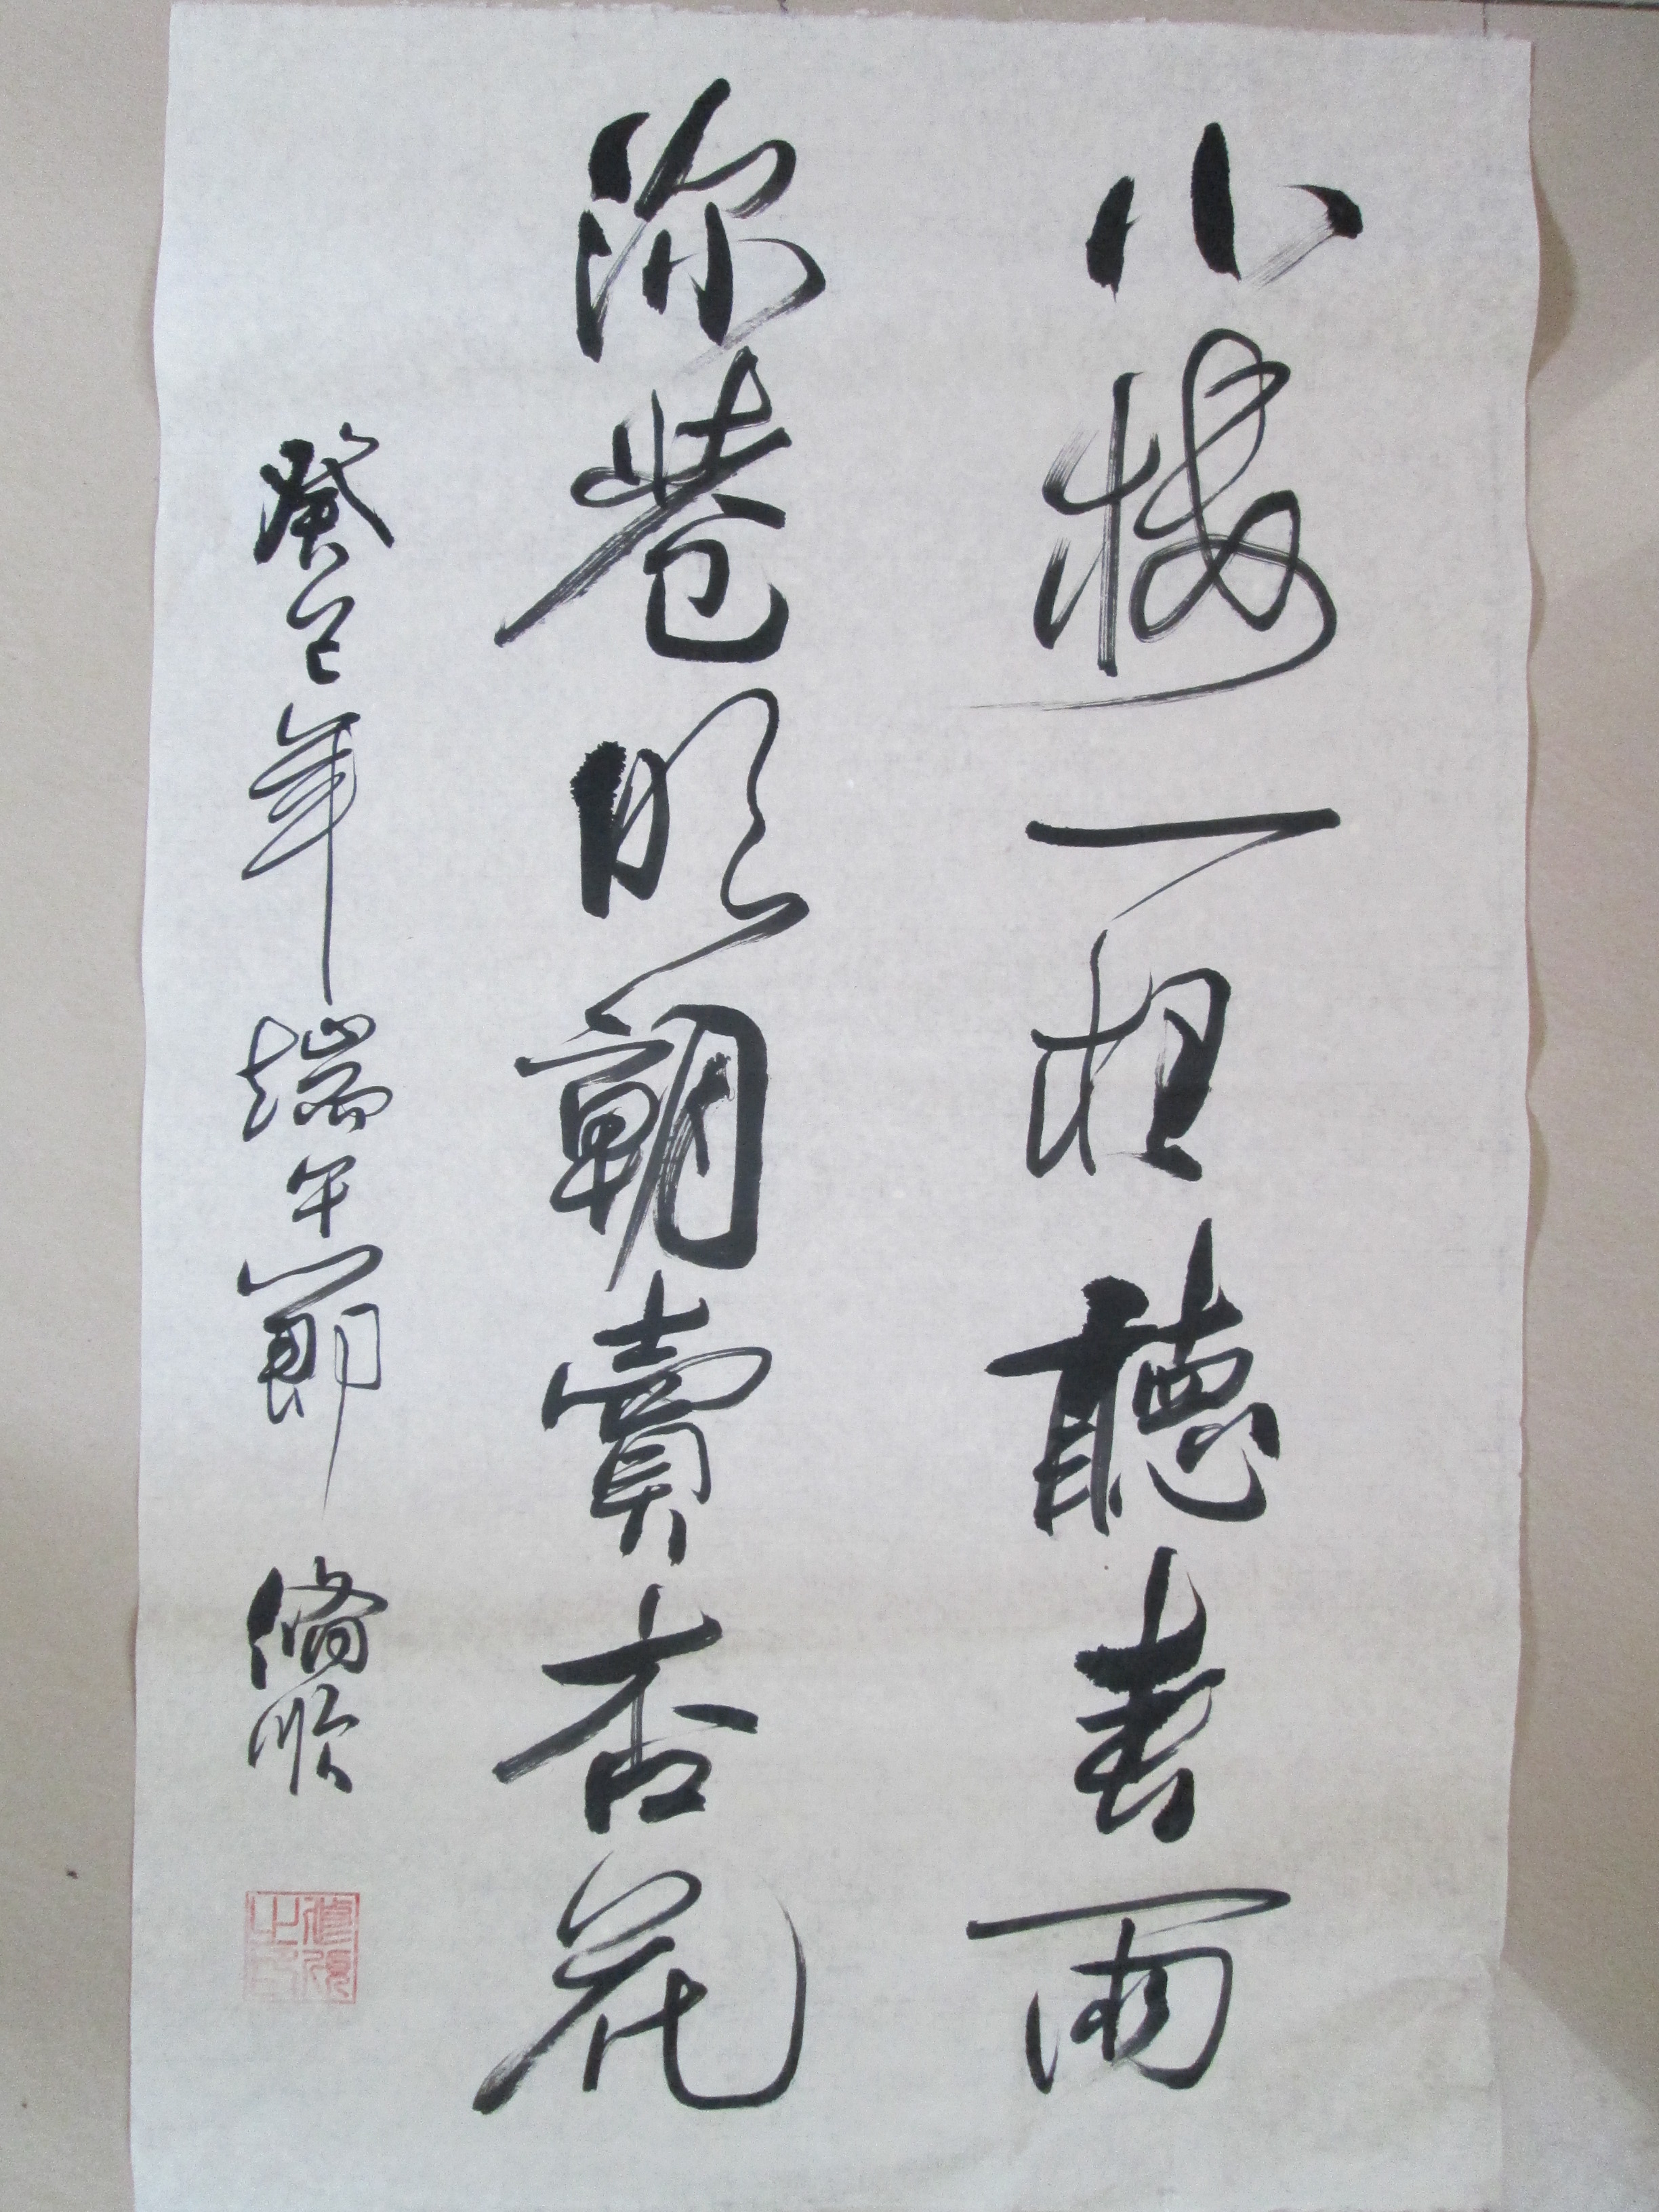 小樓一夜聽春雨
深巷明朝賣杏花
癸巳年端午節 脩順
修順之印